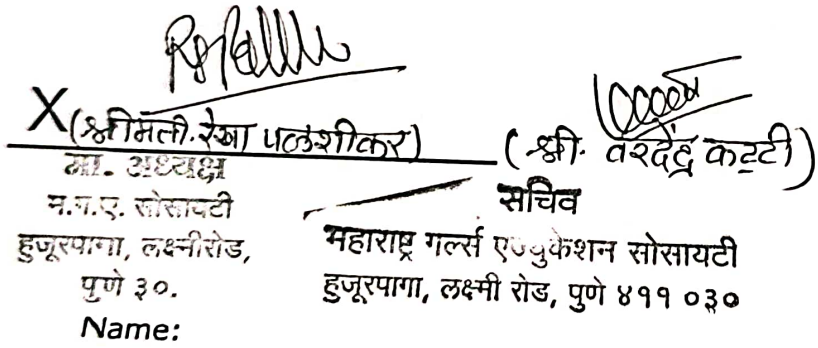 X (श्रीमती. रेखा पळशीकर)
मा. अध्यक्ष
म.ग.ए. सोसायटी
हुजूरपागा, लक्ष्मीरोड,
पुणे ३०.
Name:
(श्री. वरदेंद्र कट्टी)
सचिव
महाराष्ट्र गर्ल्स एज्युकेशन सोसायटी
हुजूरपागा, लक्ष्मी रोड, पुणे ४११ ०३०